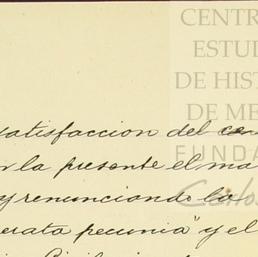 CENTR
ESTUD
DE HIST
DE ME
FUNDA
Carlos
satisfaccion del
la presente el ma
y renunciando la
erata pecunia" y el